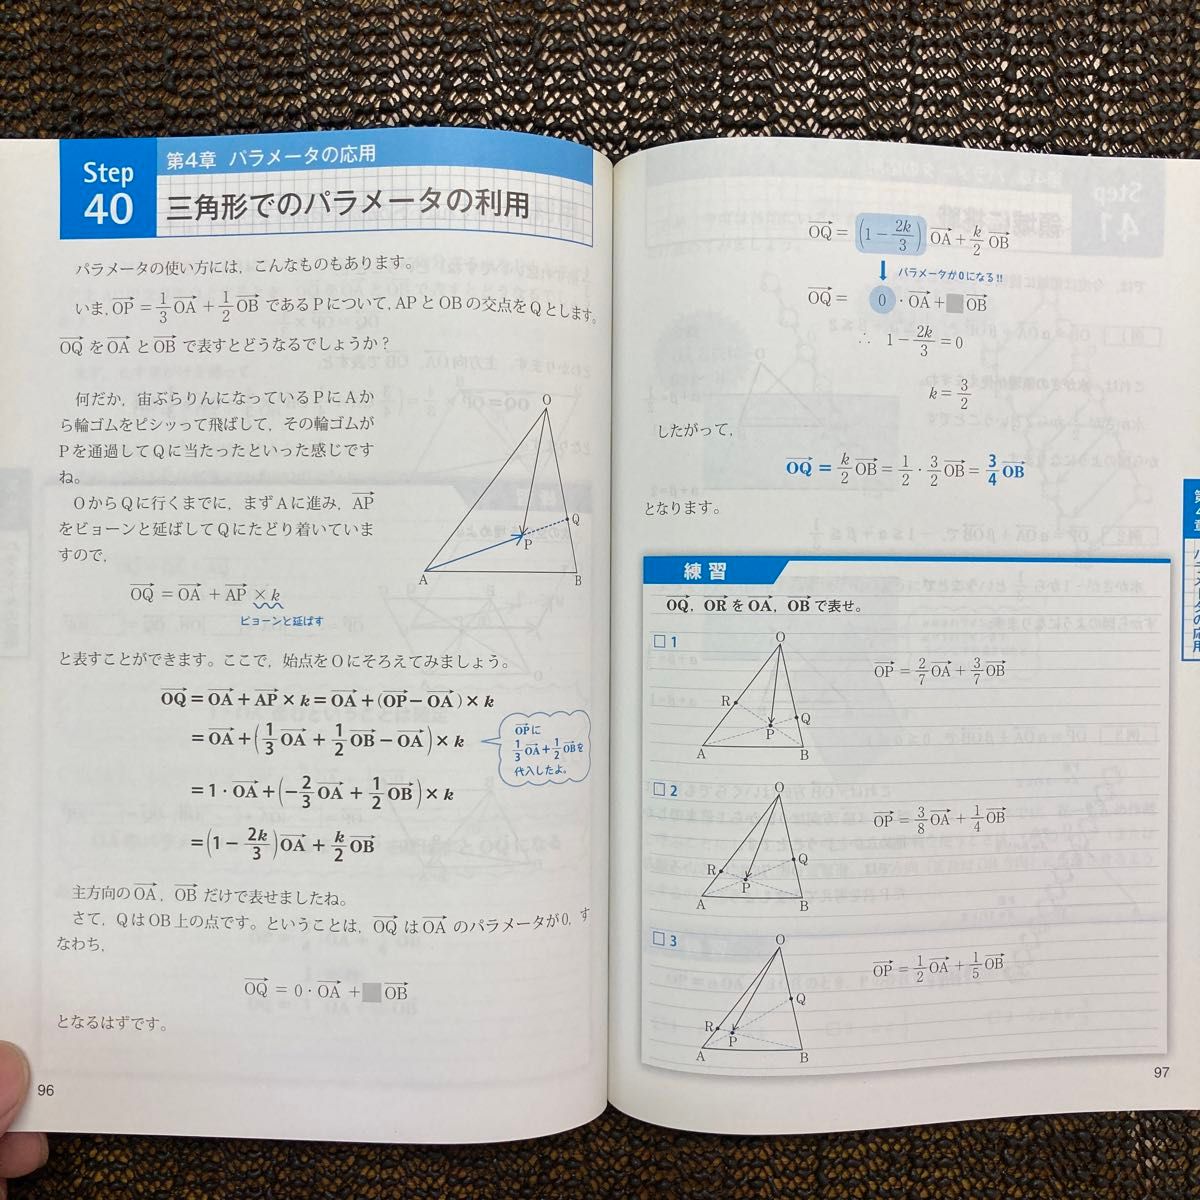 Step
40
第4章 パラメータの応用
三角形でのパラメータの利用
パラメータの使い方には，こんなものもあります。
いま，OP→ = 1/3 OA→ + 1/2 OB→ であるPについて，APとOBの交点をQとします。
OQ→ をOA→ とOB→ で表すとどうなるでしょうか？
何だか，宙ぶらりんになっているPにAか
ら輪ゴムをピシッって飛ばして，その輪ゴムが
Pを通過してQに当たったといった感じです
ね。
OからQに行くまでに，まずAに進み，AP→
をビョーンと延ばしてQにたどり着いていま
すので，
O
Q
P
A
B
OQ→ = OA→ + AP→ × k
ビョーンと延ばす
と表すことができます。ここで，始点をOにそろえてみましょう。
OQ→ = OA→ + AP→ × k = OA→ + (OP→ − OA→) × k
= OA→ + (1/3 OA→ + 1/2 OB→ − OA→) × k
OP→に
1/3 OA→ + 1/2 OB→を
代入したよ。
= 1・OA→ + (−2/3 OA→ + 1/2 OB→) × k
= (1 − 2k/3) OA→ + k/2 OB→
主方向のOA→，OB→ だけで表せましたね。
さて，QはOB上の点です。ということは，OQ→ はOA→ のパラメータが0，す
なわち，
OQ→ = 0・OA→ + ■ OB→
となるはずです。
96
OQ→ = (1 − 2k/3) OA→ + k/2 OB→
パラメータが0になる!!
OQ→ = 0 ・OA→ + ■ OB→
∴ 1 − 2k/3 = 0
k = 3/2
したがって，
OQ→ = k/2 OB→ = 1/2・3/2 OB→ = 3/4 OB→
となります。
第4章
パラメータの応用
練習
OQ→，OR→ をOA→，OB→ で表せ。
□1
O
R
Q
P
A
B
OP→ = 2/7 OA→ + 3/7 OB→
□2
O
Q
R
P
A
B
OP→ = 3/8 OA→ + 1/4 OB→
□3
O
Q
R
P
A
B
OP→ = 1/2 OA→ + 1/5 OB→
97